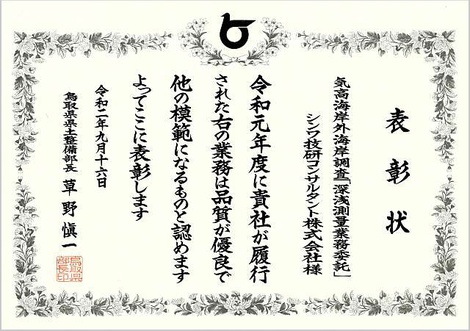 表彰状
気高海岸外海岸調査[深浅測量業務委託]
シンワ技研コンサルタント株式会社様
令和元年度に貴社が履行
された右の業務は品質が優良で
他の模範になるものと認めます
よってここに表彰します
令和二年九月十六日
鳥取県県土整備部長 草野愼一